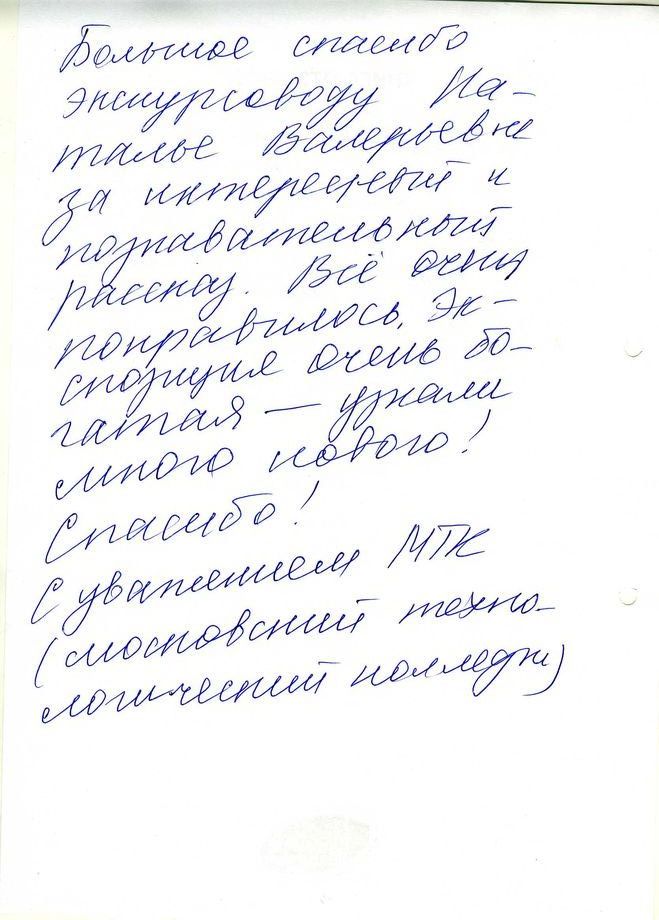 Большое спасибо
экскурсоводу На-
талье Валерьевне
за интересный и
познавательный
рассказ. Всё очень
понравилось. Эк-
спозиция очень бо-
гатая — узнали
много нового!
Спасибо!
С уважением МТК
(московский техно-
логический колледж)